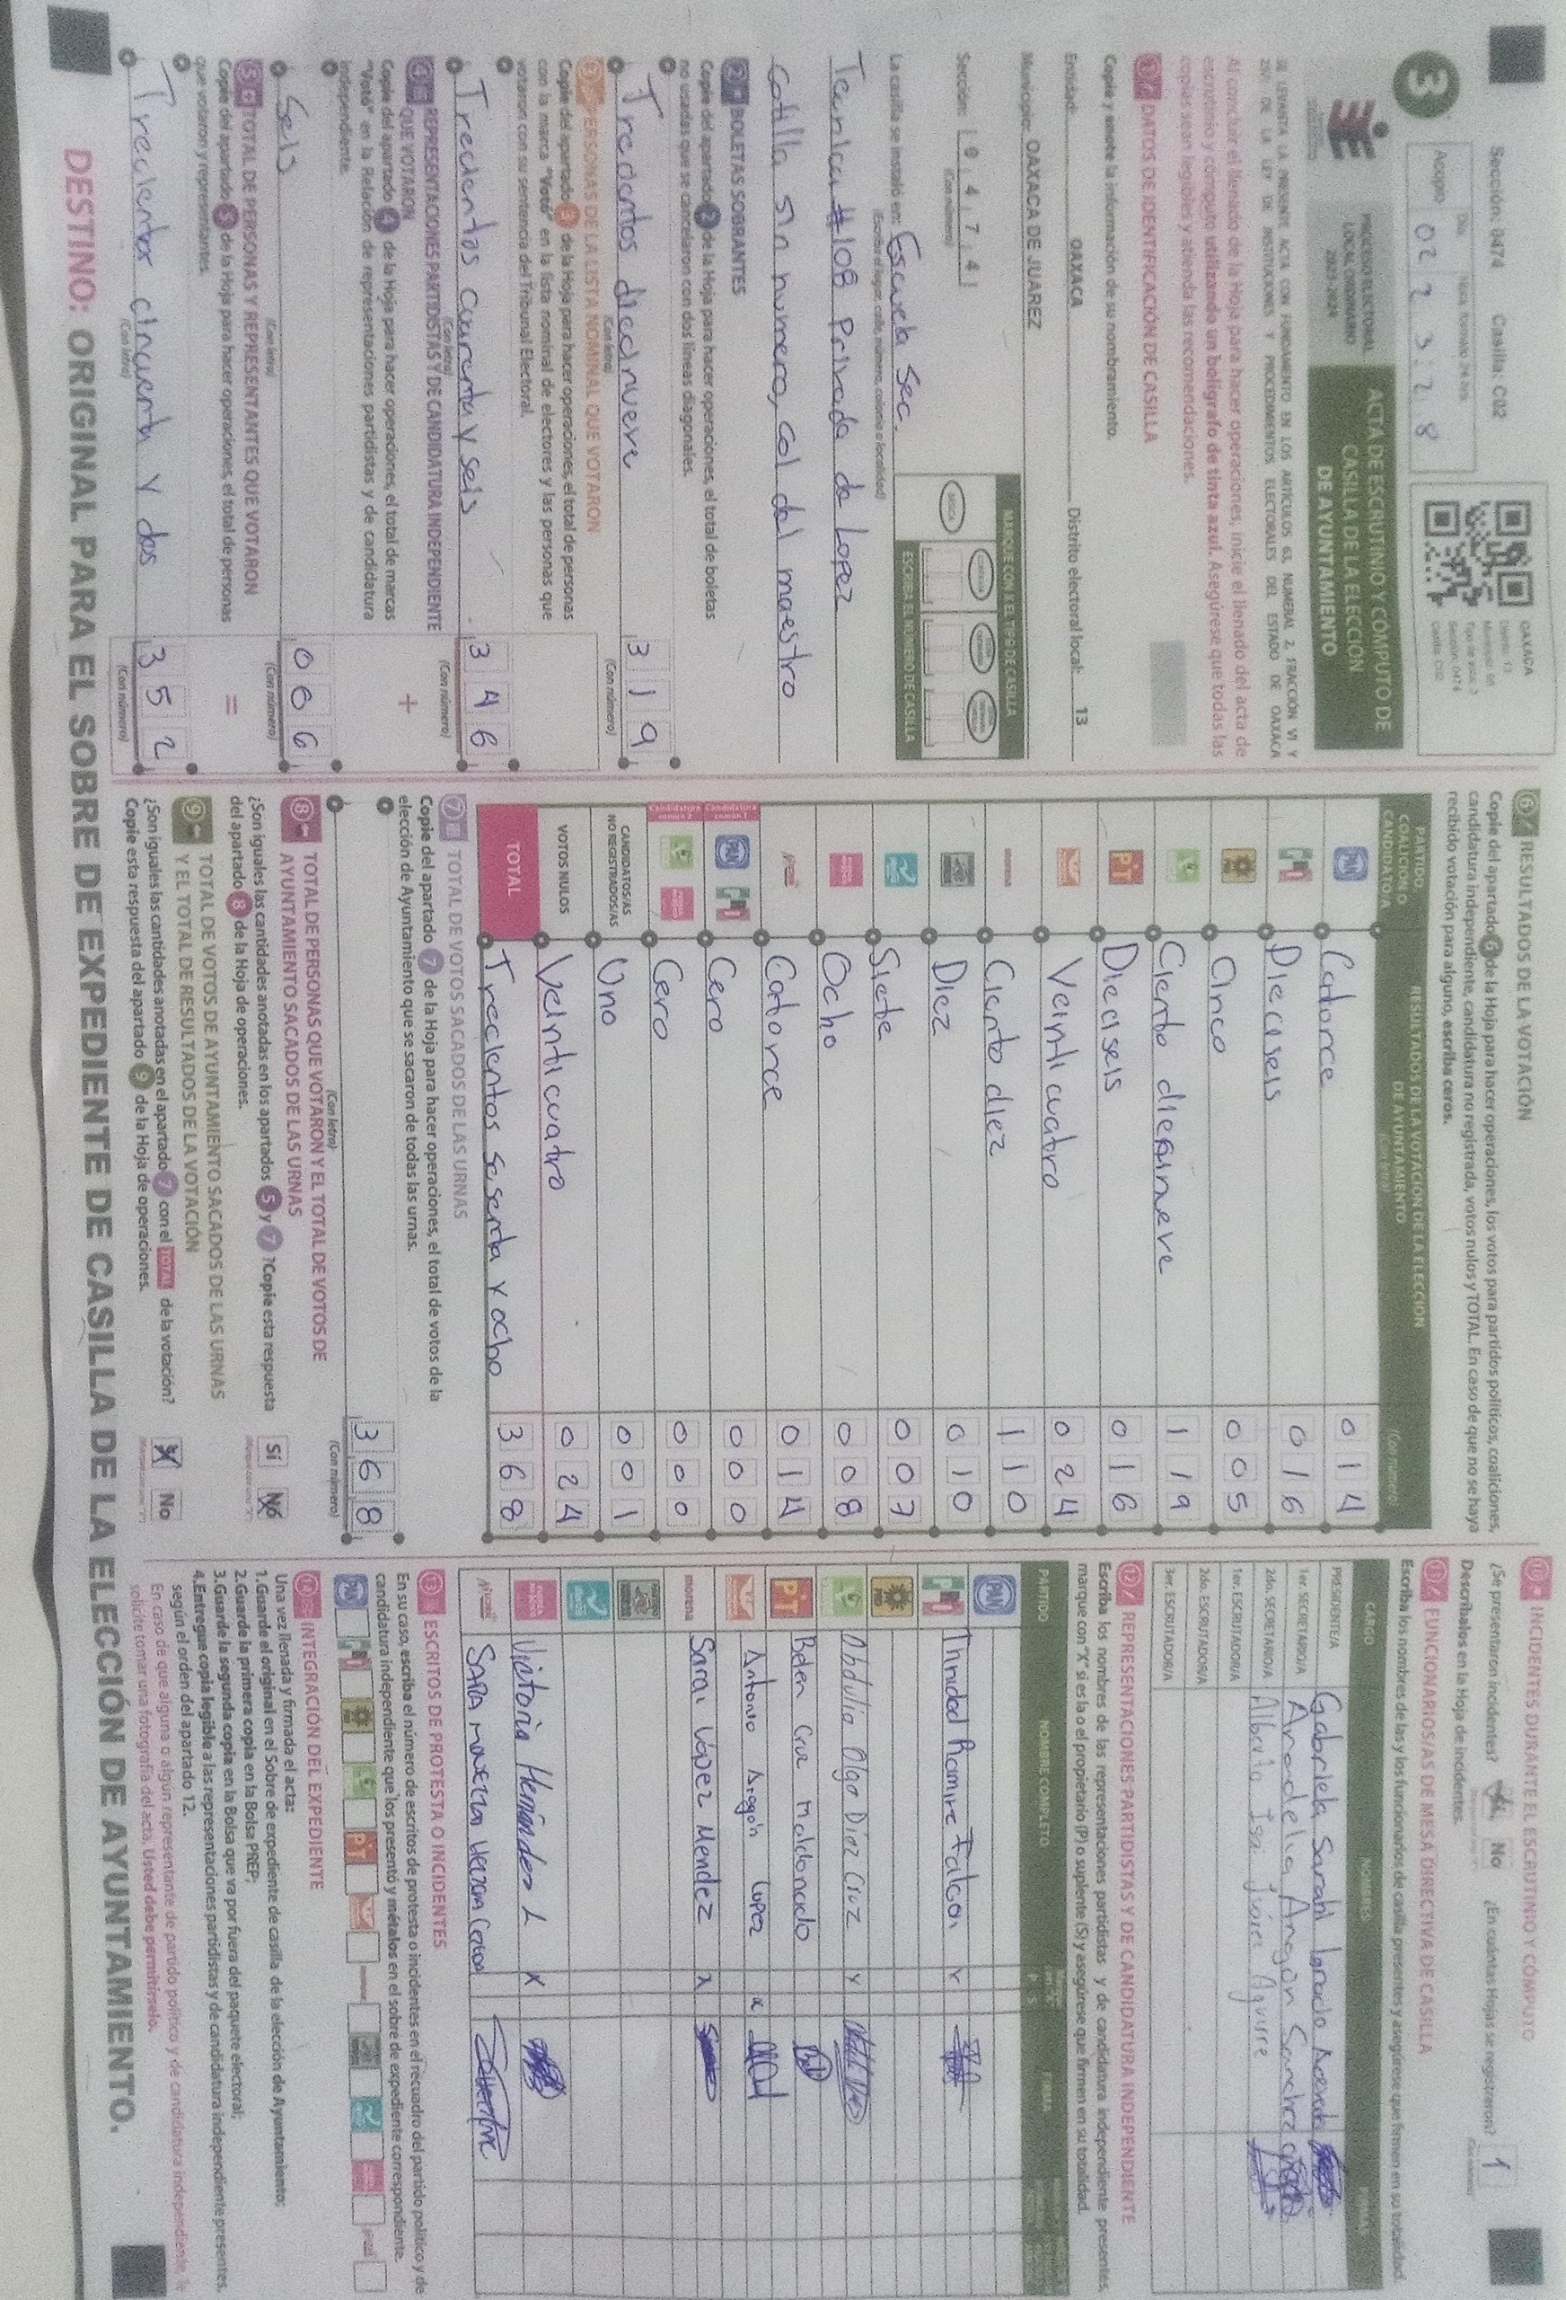 Sección: 0474 Casilla: C02
Acopio 02 23:28
3
PROCESO ELECTORAL
LOCAL ORDINARIO
2023-2024
ACTA DE ESCRUTINIO Y CÓMPUTO DE
CASILLA DE LA ELECCIÓN
DE AYUNTAMIENTO
OAXACA
SE LEVANTA LA PRESENTE ACTA CON FUNDAMENTO EN LOS ARTÍCULOS 63, NUMERAL 2, FRACCIÓN VI Y
DE LA LEY DE INSTITUCIONES Y PROCEDIMIENTOS ELECTORALES DEL ESTADO DE OAXACA
Al concluir el llenado de la Hoja para hacer operaciones, inicie el llenado del acta de
escrutinio y cómputo utilizando un bolígrafo de tinta azul. Asegúrese que todas las
copias sean legibles y atienda las recomendaciones.
1 DATOS DE IDENTIFICACIÓN DE CASILLA
Copie y anote la información de su nombramiento.
Entidad: OAXACA Distrito electoral local: 13
Municipio: OAXACA DE JUÁREZ
Sección: 0474
(Con número)
MARQUE CON X EL TIPO DE CASILLA
ESCRIBA EL NÚMERO DE CASILLA
La casilla se instaló en: Escuela sec.
(Escriba el lugar, calle, número, colonia o localidad)
#108 Privada de Lopez
sin numero, col del maestro
2 BOLETAS SOBRANTES
Copie del apartado 2 de la Hoja para hacer operaciones, el total de boletas
no usadas que se cancelaron con dos líneas diagonales.
diecinueve 319
(Con letra) (Con número)
3 PERSONAS DE LA LISTA NOMINAL QUE VOTARON
Copie del apartado 3 de la Hoja para hacer operaciones, el total de personas
con la marca "Votó" en la lista nominal de electores y las personas que
votaron con su sentencia del Tribunal Electoral.
Trecientos cuarenta y seis 346
(Con letra) (Con número)
4 REPRESENTACIONES PARTIDISTAS Y DE CANDIDATURA INDEPENDIENTE
QUE VOTARON
+
Copie del apartado 4 de la Hoja para hacer operaciones, el total de marcas
"Votó" en la Relación de representaciones partidistas y de candidatura
independiente.
Seis 006
(Con letra) (Con número)
5 TOTAL DE PERSONAS Y REPRESENTANTES QUE VOTARON
=
Copie del apartado 5 de la Hoja para hacer operaciones, el total de personas
que votaron y representantes.
Trecientos cincuenta y dos 352
(Con letra) (Con número)
6 RESULTADOS DE LA VOTACIÓN
Copie del apartado 6 de la Hoja para hacer operaciones, los votos para partidos políticos, coaliciones,
candidatura independiente, candidatura no registrada, votos nulos y TOTAL. En caso de que no se haya
recibido votación para alguno, escriba ceros.
PARTIDO,
COALICIÓN O
CANDIDATO/A
RESULTADOS DE LA VOTACIÓN DE LA ELECCIÓN
DE AYUNTAMIENTO
(Con letra)
(Con número)
PAN Catorce 014
Dieciseis 016
Cinco 005
Ciento diecinueve 119
PT Dieciseis 016
Veinti cuatro 024
morena Ciento diez 110
Diez 010
Siete 007
Ocho 008
Catorce 014
PAN Cero 000
Cero 000
CANDIDATOS/AS
NO REGISTRADOS/AS Uno 001
VOTOS NULOS Veinti cuatro 024
TOTAL Trecientos sesenta y ocho 368
7 TOTAL DE VOTOS SACADOS DE LAS URNAS
Copie del apartado 7 de la Hoja para hacer operaciones, el total de votos de la
elección de Ayuntamiento que se sacaron de todas las urnas.
368
(Con letra) (Con número)
8 TOTAL DE PERSONAS QUE VOTARON Y EL TOTAL DE VOTOS DE
AYUNTAMIENTO SACADOS DE LAS URNAS
¿Son iguales las cantidades anotadas en los apartados 5 y 7? Copie esta respuesta
del apartado 8 de la Hoja de operaciones.
Sí No
9 TOTAL DE VOTOS DE AYUNTAMIENTO SACADOS DE LAS URNAS
Y EL TOTAL DE RESULTADOS DE LA VOTACIÓN
¿Son iguales las cantidades anotadas en el apartado 7 con el TOTAL de la votación?
Copie esta respuesta del apartado 9 de la Hoja de operaciones.
Sí No
10 INCIDENTES DURANTE EL ESCRUTINIO Y CÓMPUTO
¿Se presentaron incidentes? Sí No ¿En cuántas Hojas se registraron? 1
Descríbalos en la Hoja de incidentes.
11 FUNCIONARIOS/AS DE MESA DIRECTIVA DE CASILLA
Escriba los nombres de las y los funcionarios de casilla presentes y asegúrese que firmen en su totalidad.
CARGO NOMBRES FIRMAS
PRESIDENTE/A Gabriela Sarahi
1er. SECRETARIO/A Aradelia Aragon Sanchez
2do. SECRETARIO/A Alberto
1er. ESCRUTADOR/A
2do. ESCRUTADOR/A
3er. ESCRUTADOR/A
12 REPRESENTACIONES PARTIDISTAS Y DE CANDIDATURA INDEPENDIENTE
Escriba los nombres de las representaciones partidistas y de candidatura independiente presentes,
marque con "X" si es la o el propietario (P) o suplente (S) y asegúrese que firmen en su totalidad.
PARTIDO NOMBRE COMPLETO P S FIRMA
PAN
Trinidad Ramirez Falcon
Obdulia Olga Diaz Cruz
PT Belen Cruz Maldonado
Antonio Aragón Lopez x
morena Sarai López Mendez x
Victoria Hernández L x
SARA
13 ESCRITOS DE PROTESTA O INCIDENTES
En su caso, escriba el número de escritos de protesta o incidentes en el recuadro del partido político y de
candidatura independiente que los presentó y métalos en el sobre de expediente correspondiente.
14 INTEGRACIÓN DEL EXPEDIENTE
Una vez llenada y firmada el acta:
1.Guarde el original en el Sobre de expediente de casilla de la elección de Ayuntamiento;
2.Guarde la primera copia en la Bolsa PREP;
3.Guarde la segunda copia en la Bolsa que va por fuera del paquete electoral;
4.Entregue copia legible a las representaciones partidistas y de candidatura independiente presentes,
según el orden del apartado 12.
En caso de que alguna o algún representante de partido político y de candidatura independiente, le
solicite tomar una fotografía del acta, Usted debe permitírselo.
DESTINO: ORIGINAL PARA EL SOBRE DE EXPEDIENTE DE CASILLA DE LA ELECCIÓN DE AYUNTAMIENTO.